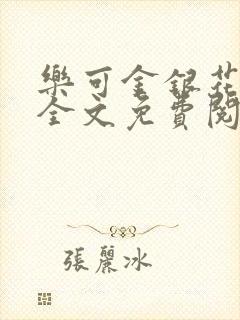 樂可金銀花
全文免費閱
張麗冰